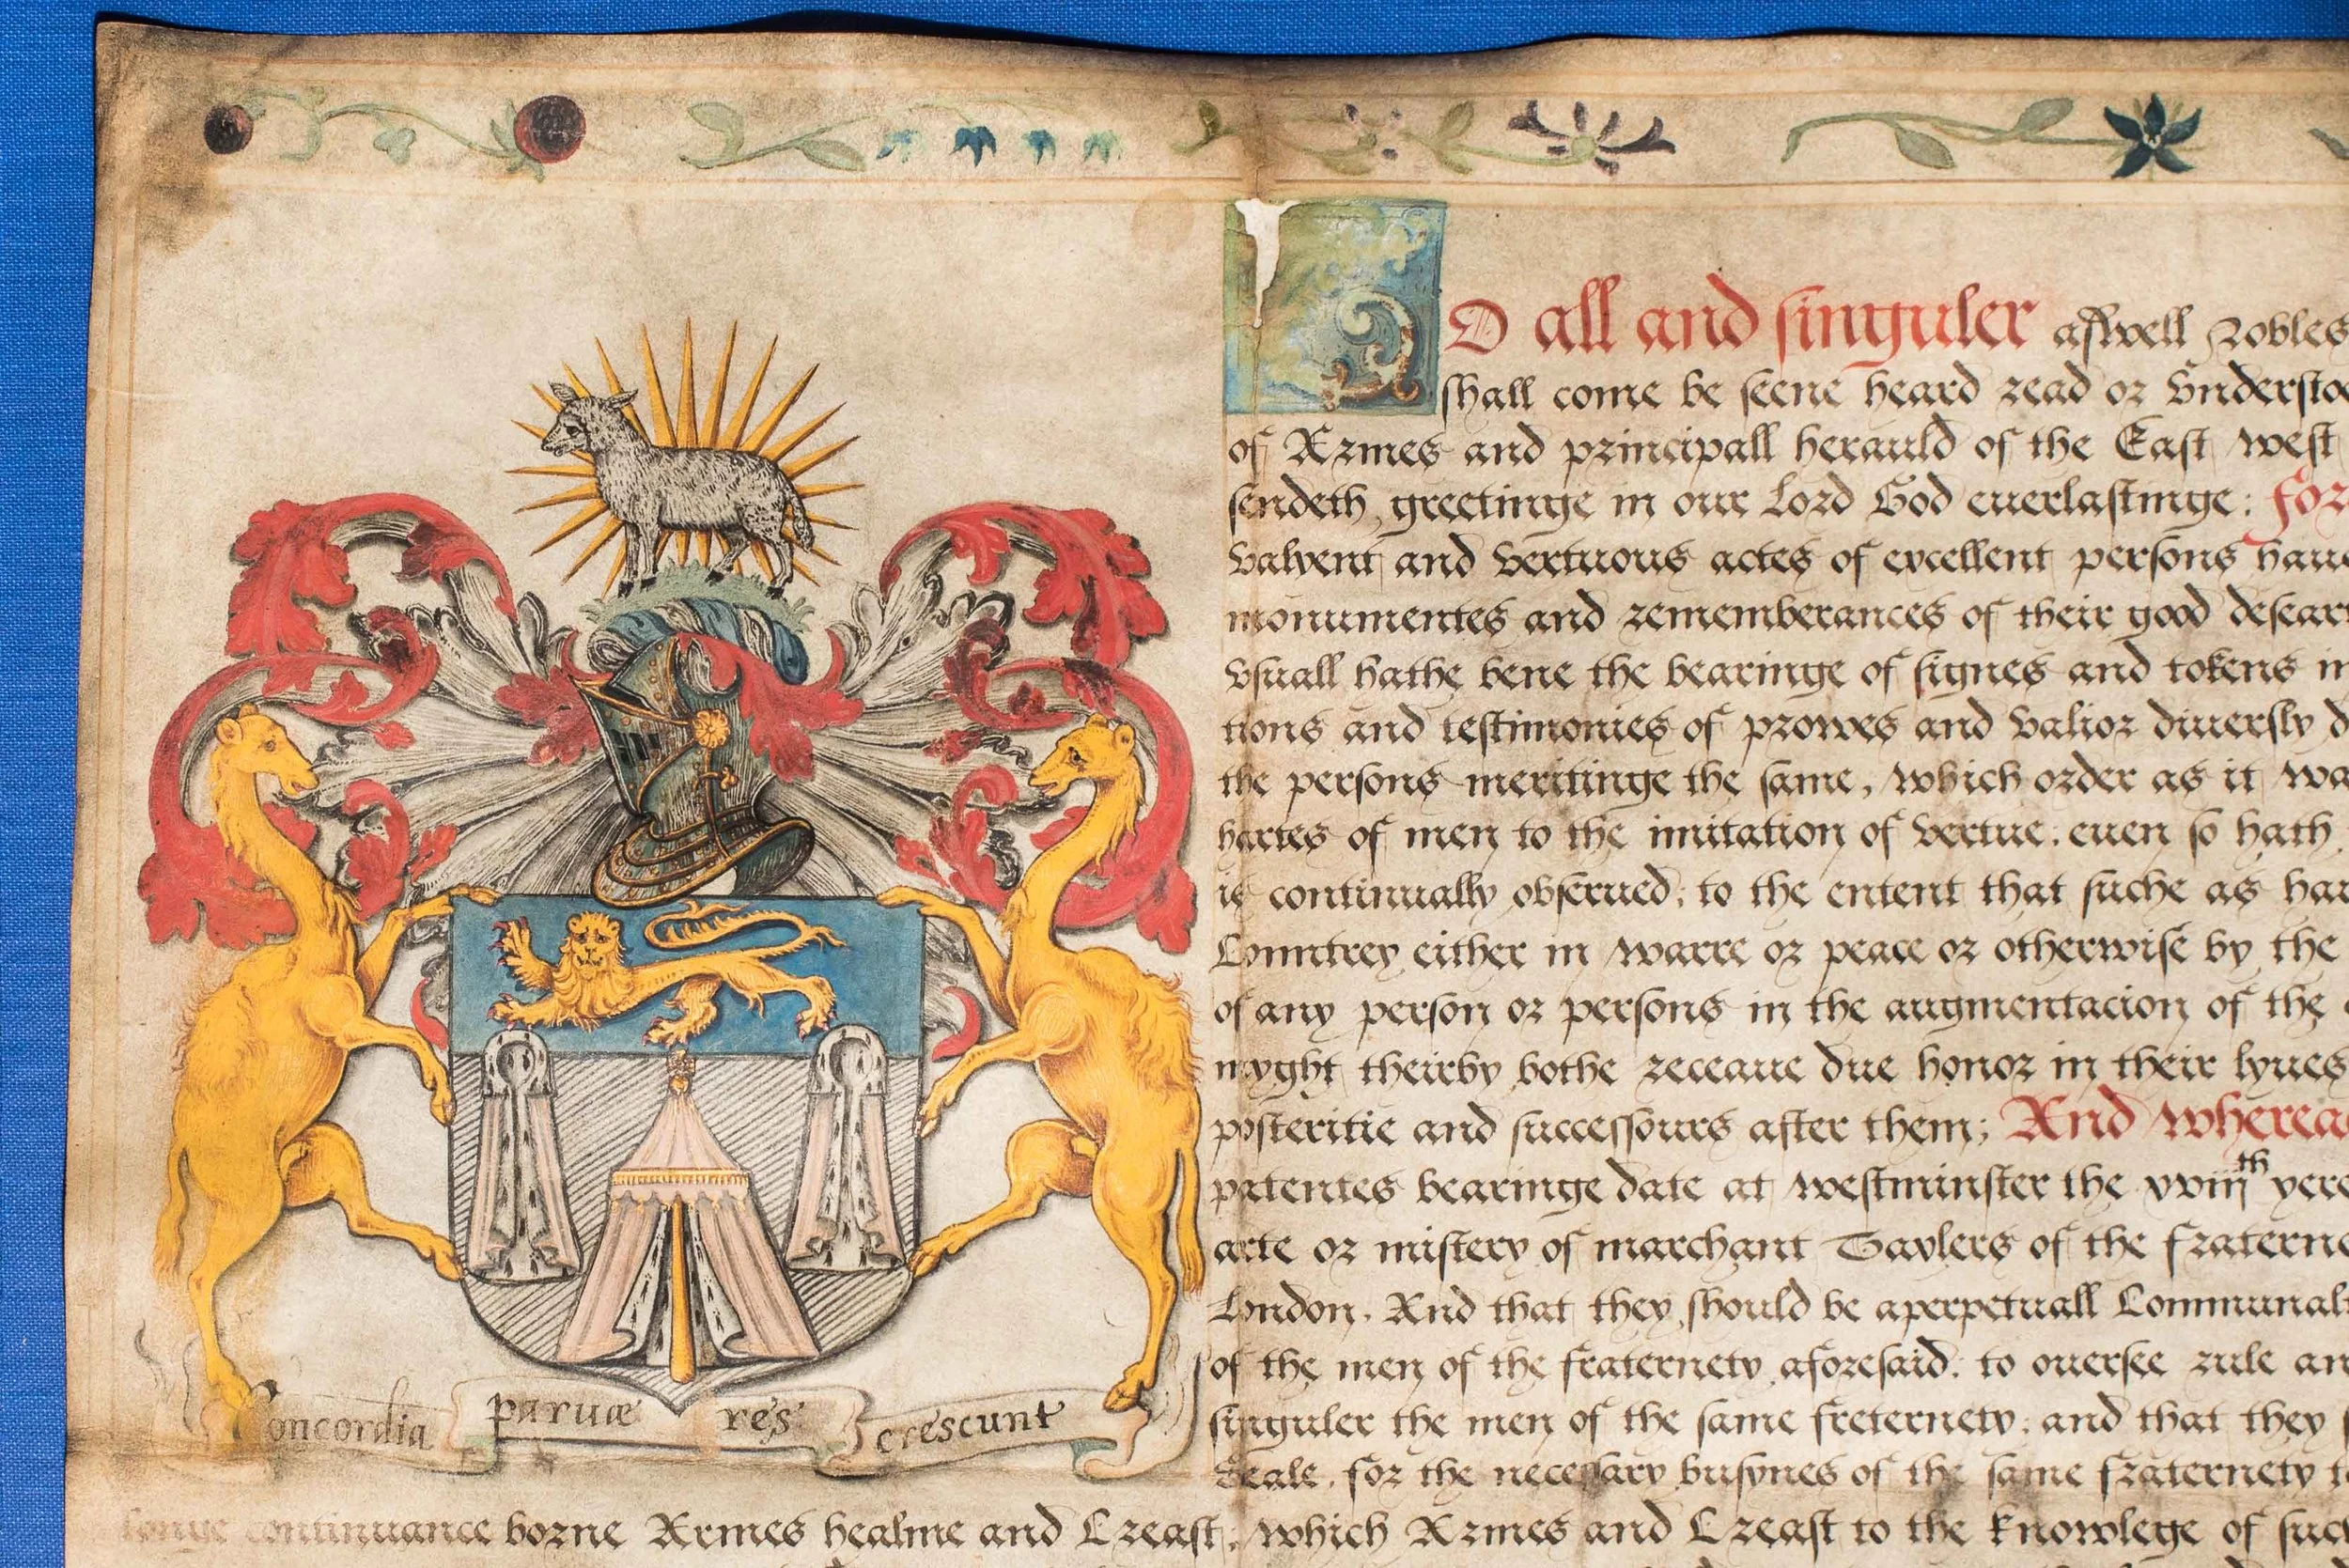 Concordia paruæ res crescunt
TO all and singuler aswell Nobles
shall come be seene heard read or vnderstoo
of Armes and principall herauld of the East west
sendeth greetinge in our Lord God euerlastinge: For
valyent and vertuous actes of excellent persons haue
monumentes and rememberances of their good desear
vsuall hathe bene the bearinge of signes and tokens in
tions and testimonies of prowes and valior diuersly d
the persons meritinge the same, which order as it wa
hartes of men to the imitation of vertue: euen so hath
is continually obserued: to the entent that suche as hau
Countrey either in warre or peace or otherwise by the
of any person or persons in the augmentacion of the
myght theirby bothe receaue due honor in their lyues
posteritie and successours after them; And wherea
patentes bearinge date at westminster the xviijth yere
arte or mistery of marchant Taylers of the fraterne
London. And that they should be a perpetuall Communal
of the men of the fraternety aforesaid. to ouersee rule an
singuler the men of the same freternety: and that they s
Seale. for the necessary busynes of the same fraternety t
longe continuance borne Armes healme and Creast: which Armes and Creast to the knowlege of suc